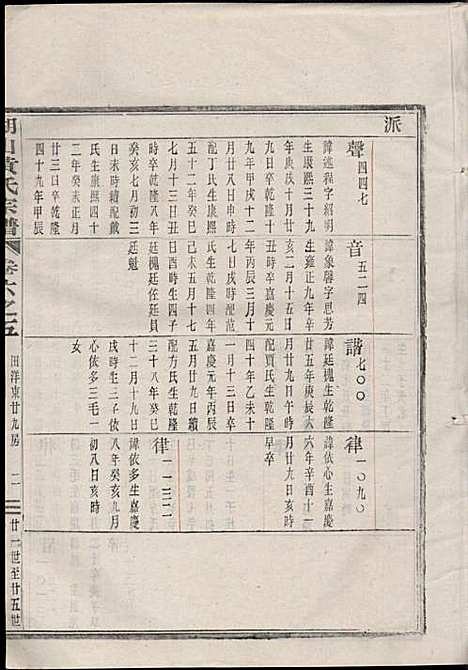 派
聲 四四七
諱述程字紹明
生康熙三十九
年庚辰十月廿
九日卒乾隆十
九年甲戌十二
月廿八日申時
配丁氏生康熙
五十二年癸巳
七月十三日丑
時卒乾隆八年
癸亥七月初三
日未時續配戴
氏生康熙四十
二年癸未正月
廿三日卒乾隆
四十九年甲辰
音 五二一四
諱象馨字思芳
生雍正九年辛
亥二月十五戌
時卒嘉慶元
年丙辰三月十
七日戌時配范
氏生乾隆四年
己未五月十七
日酉時生四子
廷槐廷佐廷員
廷魁
諧 七〇〇
諱廷槐生乾隆
廿五年庚辰六
月廿九日午時
配賈氏生乾隆
四十年乙未十
一月十三日卒
嘉慶元年丙辰
五月廿九日續
配方氏生乾隆
三十八年癸巳
十二月十九日
戌時生三子依
心依多三毛一
女
律 一〇九〇
諱依心生嘉慶
六年辛酉十一
月廿九日亥時
早卒
律 一一三二
諱依多生嘉慶
八年癸亥九月
初八日亥時
明山黃氏宗譜
卷六之五
田洋東廿九房
二
廿一世至廿五世